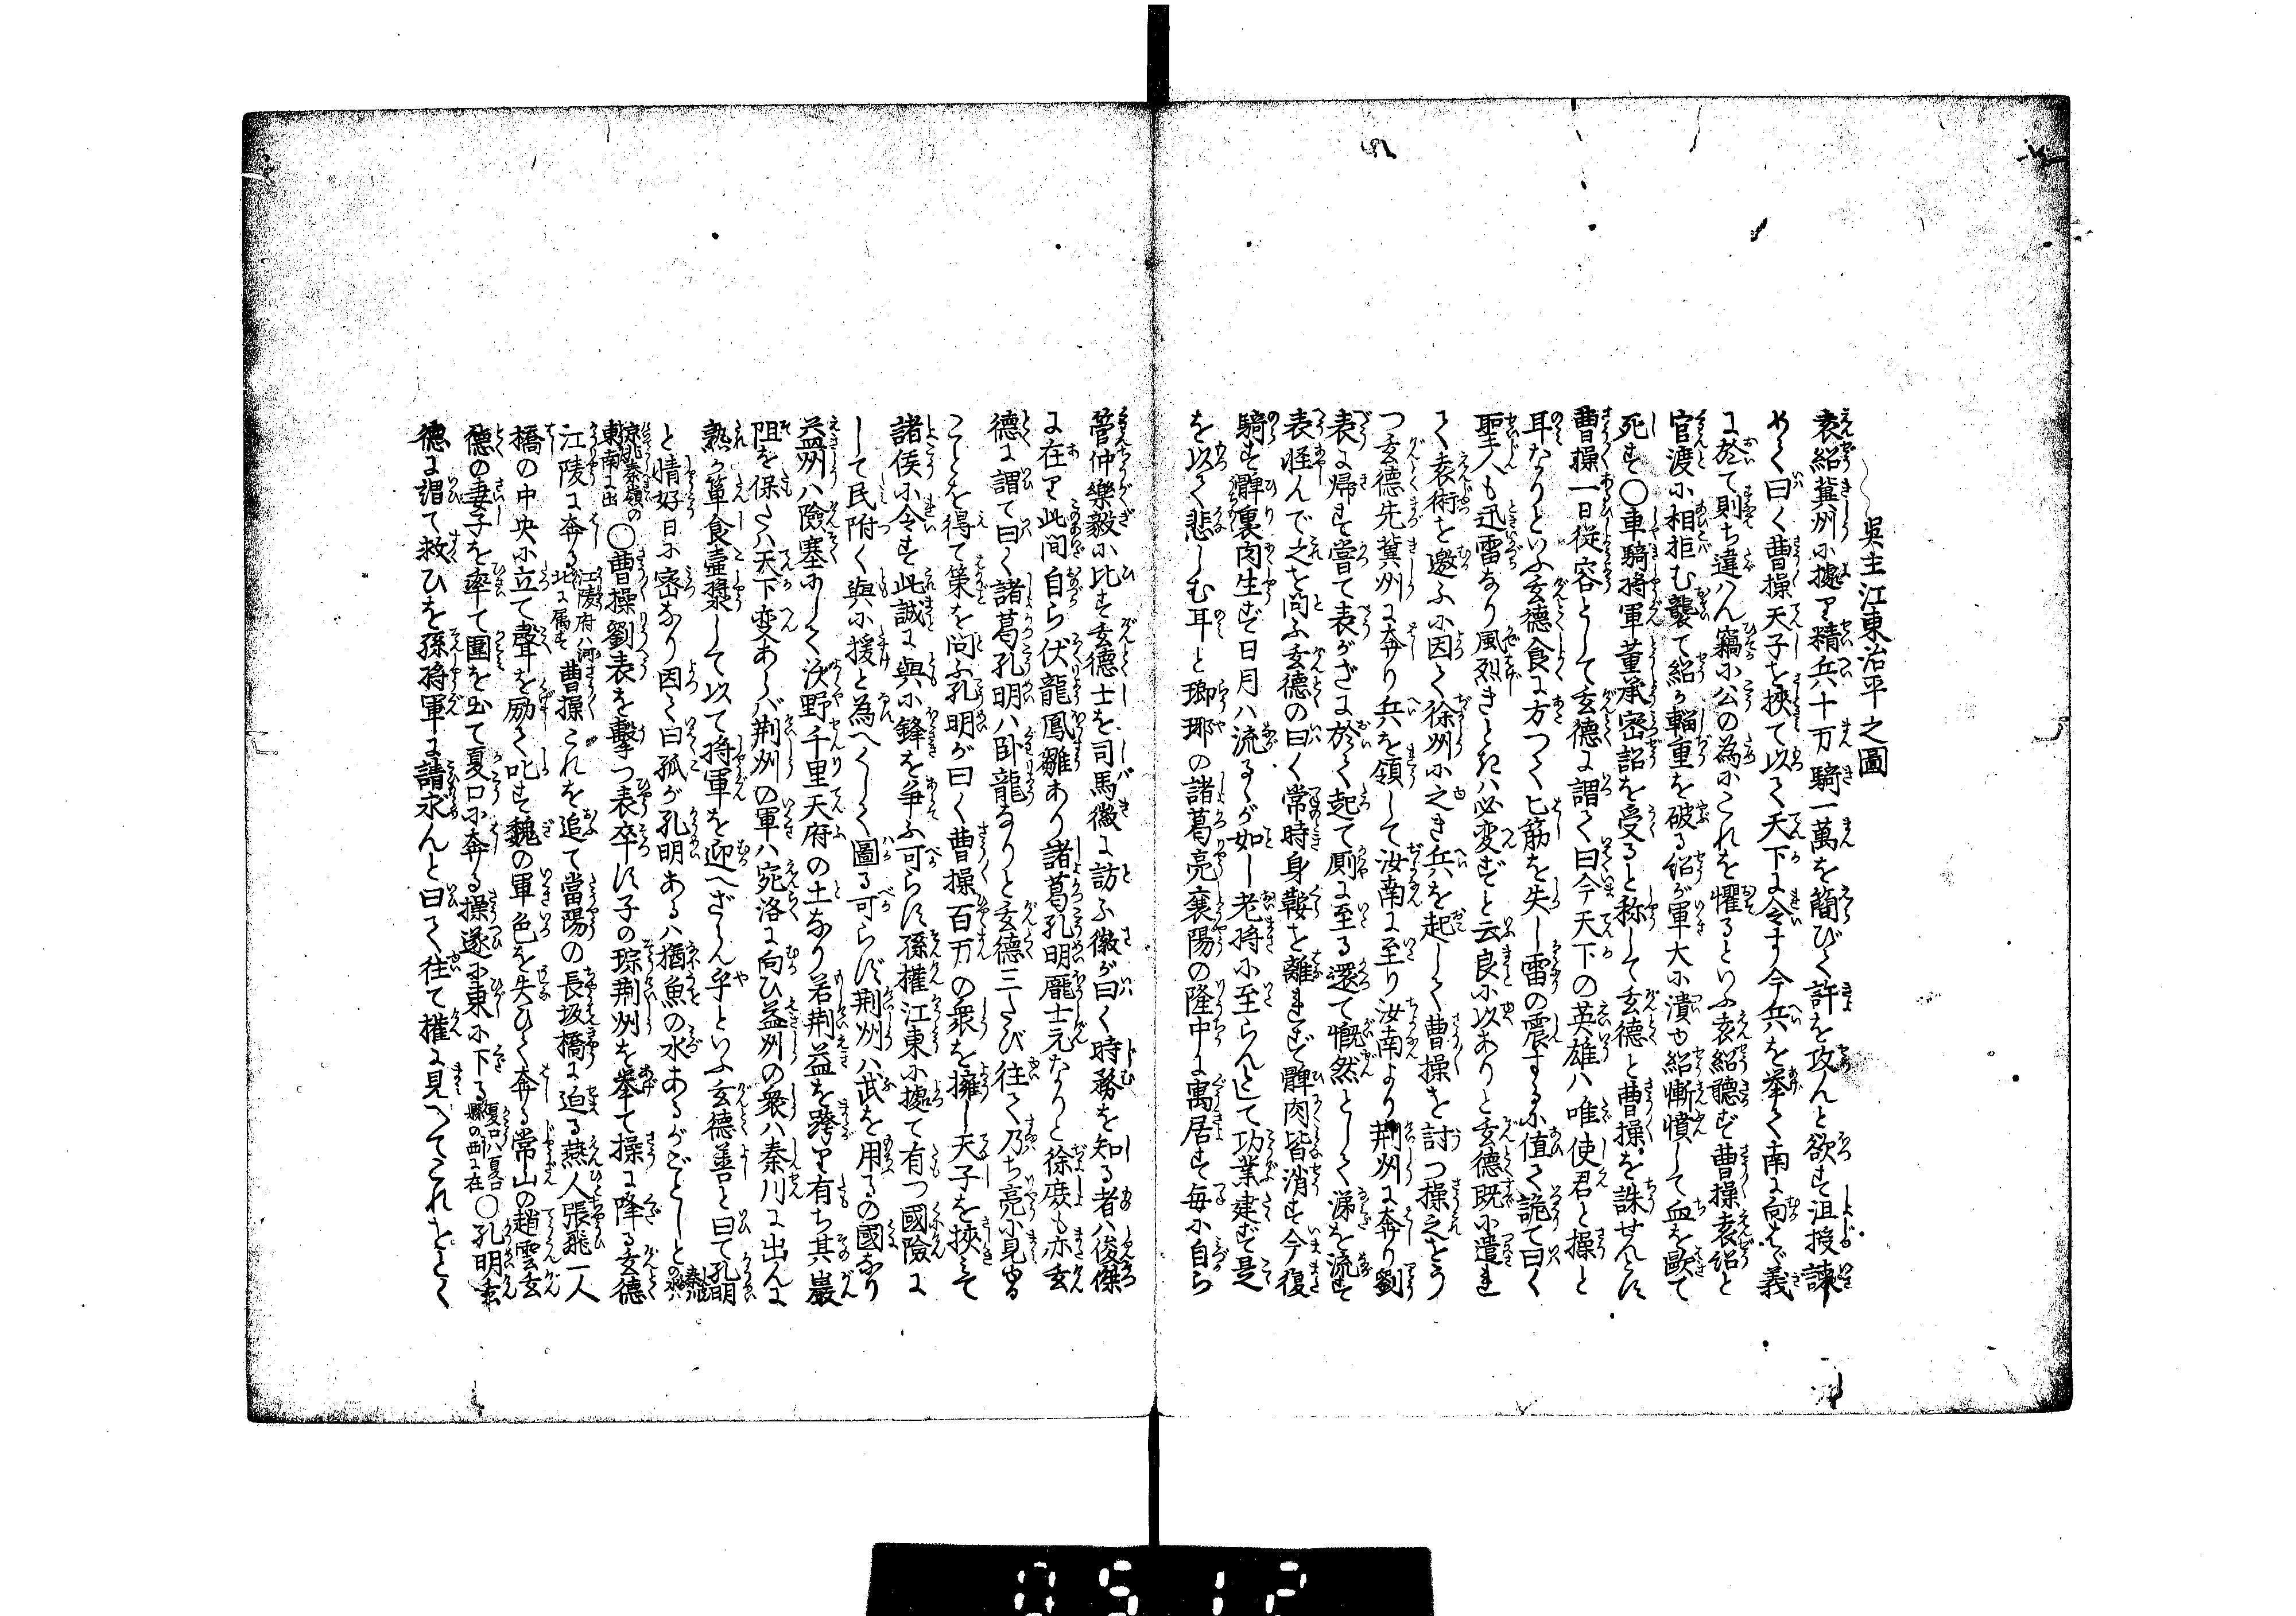 呉主江東治平之圖
袁紹冀州小據り精兵十万騎一萬を簡びく許を攻んと欲す沮授諫
めく曰く曹操天子を挾て以く天下に令す今兵を挙く南に向はゞ義
に於て則ち違ハん竊小公の為小これを懼るといふ袁紹聴ず曹操袁紹と
官渡小相拒む襲て紹が輜重を破る紹が軍大小潰也紹慚憤して血を歐て
死す〇車騎将軍董承密詔を受ると称して玄德と曹操を誅せんとす
曹操一日従容として玄德に謂く曰今天下の英雄ハ唯使君と操と
耳なりといふ玄德食に方つく匕筯を失し雷の震するに値く詭て曰く
聖人も迅雷なり風烈きときハ必変ずと云良小以ありと玄德既小遣れ
く袁術を邀ふ小因く徐州小之き兵を起しく曹操を討つ操之をう
つ玄德先冀州に奔り兵を領して汝南に至り汝南より荆州に奔り劉
表に帰す嘗て表がざに於く起て厠に至る還て慨然としく涕を流す
表怪んで之を問ふ玄德の曰く常時身鞍を離れず髀肉皆消す今復
騎す髀裏肉生ず日月ハ流るゝが如し老将小至らんとして功業建ず是
を以く悲しむ耳と瑯琊の諸葛亮襄陽の隆中に寓居す毎小自ら
管仲樂毅小比す玄德士を司馬徽に訪ふ徽が曰く時務を知る者ハ俊傑
に在り此间自ら伏龍鳳雛あり諸葛孔明龐士元なりと徐庶も亦玄
德に謂て曰く諸葛孔明ハ卧龍なりと玄德三たび往く乃ち亮小見ゆる
ことを得て策を问ふ孔明が曰く曹操百万の衆を擁し天子を挾こて
諸侯小令す此誠に與小鋒を争ふ可らす孫權江東小據て有つ國險に
して民附く與小援と為へくしく圖る可らず荆州ハ武を用るの國なり
益州ハ險塞にしく沃野千里天府の土なり若荆益を跨り有ち其巖
阻を保たハ天下変あらバ荆州の軍ハ宛洛に向ひ益州の衆ハ秦川に出んに
熟か箪食壷漿して以て将軍を迎へざらん乎といふ玄德善と曰て孔明
と情好日小密なり因く曰孤が孔明あるハ猶魚の水あるがごとしと
〇曹操劉表を擊つ表卒す子の琮荆州を挙て操に降る玄德
江陵に奔る江陵府ハ河北に属す曹操これを追て當陽の長坂橋に迫る燕人張飛一人
橋の中央小立て聲を励く叱す魏の軍色を失ひく奔る常山の趙雲玄
德の妻子を率て圍を出て夏口小奔る操遂小東小下る夏口ハ夏口縣の西に在〇孔明玄
德に謂て救ひを孫将軍に請求んと曰く往て權に見へてこれをとく